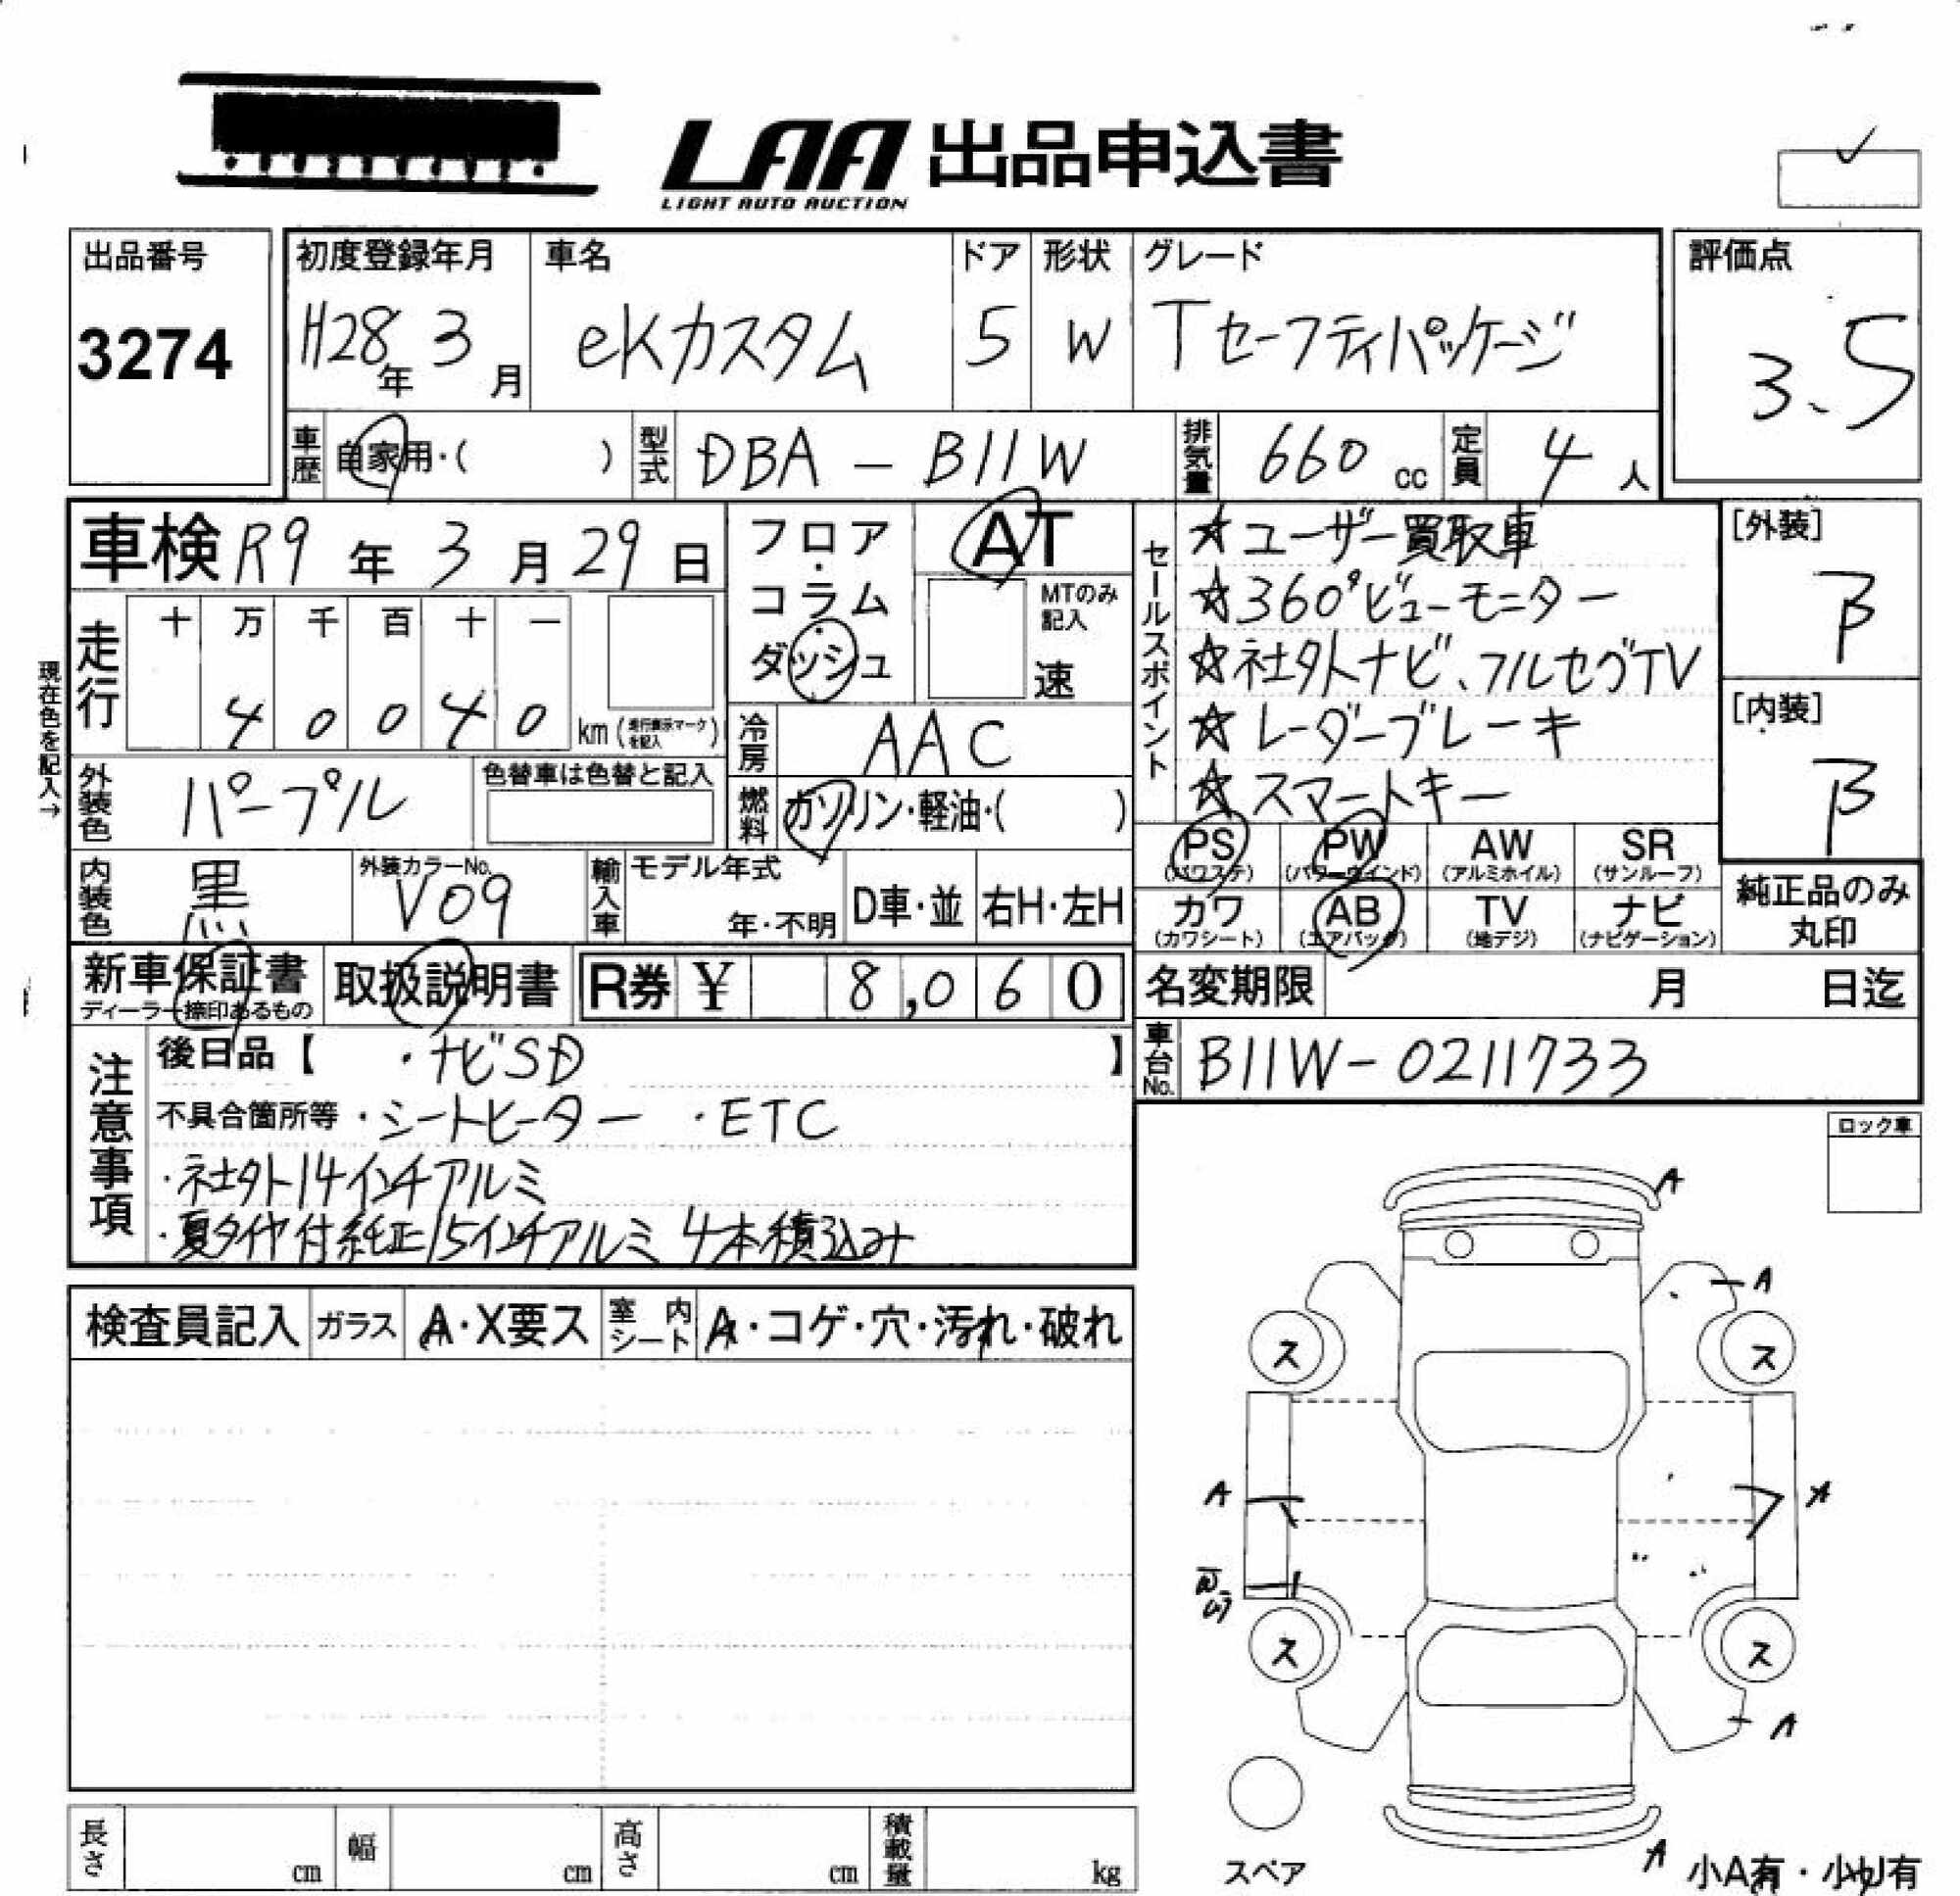 LAA 出品申込書
LIGHT AUTO AUCTION
出品番号
3274
初度登録年月
H28年 3月
車名
eKカスタム
ドア
5
形状
W
グレード
Tセーフティパッケージ
評価点
3.5
車歴 自家用・( )
型式 DBA-B11W
排気量 660 cc
定員 4人
車検 R9年 3月 29日
フロア・コラム・ダッシュ
AT
MTのみ記入
速
走行 十 万 千 百 十 一
4 0 0 4 0 km (走行表示マークを記入)
現在色を記入→
冷房 AAC
外装色 パープル
色替車は色替と記入
燃料 ガソリン・軽油・( )
セールスポイント
☆ユーザー買取車
☆360°ビューモニター
☆社外ナビ、フルセグTV
☆レーダーブレーキ
☆スマートキー
[外装]
B
[内装]
B
PS (パワステ) PW (パワーウインド) AW (アルミホイル) SR (サンルーフ)
カワ (カワシート) AB (エアバック) TV (地デジ) ナビ (ナビゲーション)
純正品のみ丸印
内装色 黒
外装カラーNo. V09
輸入車 モデル年式 年・不明 D車・並 右H・左H
新車保証書
ディーラー捺印あるもの
取扱説明書
R券 ¥ 8,060
名変期限 月 日迄
車台No. B11W-0211733
注意事項
後日品【 ・ナビSD 】
不具合箇所等 ・シートヒーター ・ETC
・社外14インチアルミ
・夏タイヤ付純正15インチアルミ 4本積込み
ロック車
検査員記入 ガラス A・X要ス 室内シート A・コゲ・穴・汚れ・破れ
A
A
ス ス
A A
ス ス
A
A
スペア
小A有・小U有
長さ cm 幅 cm 高さ cm 積載量 kg